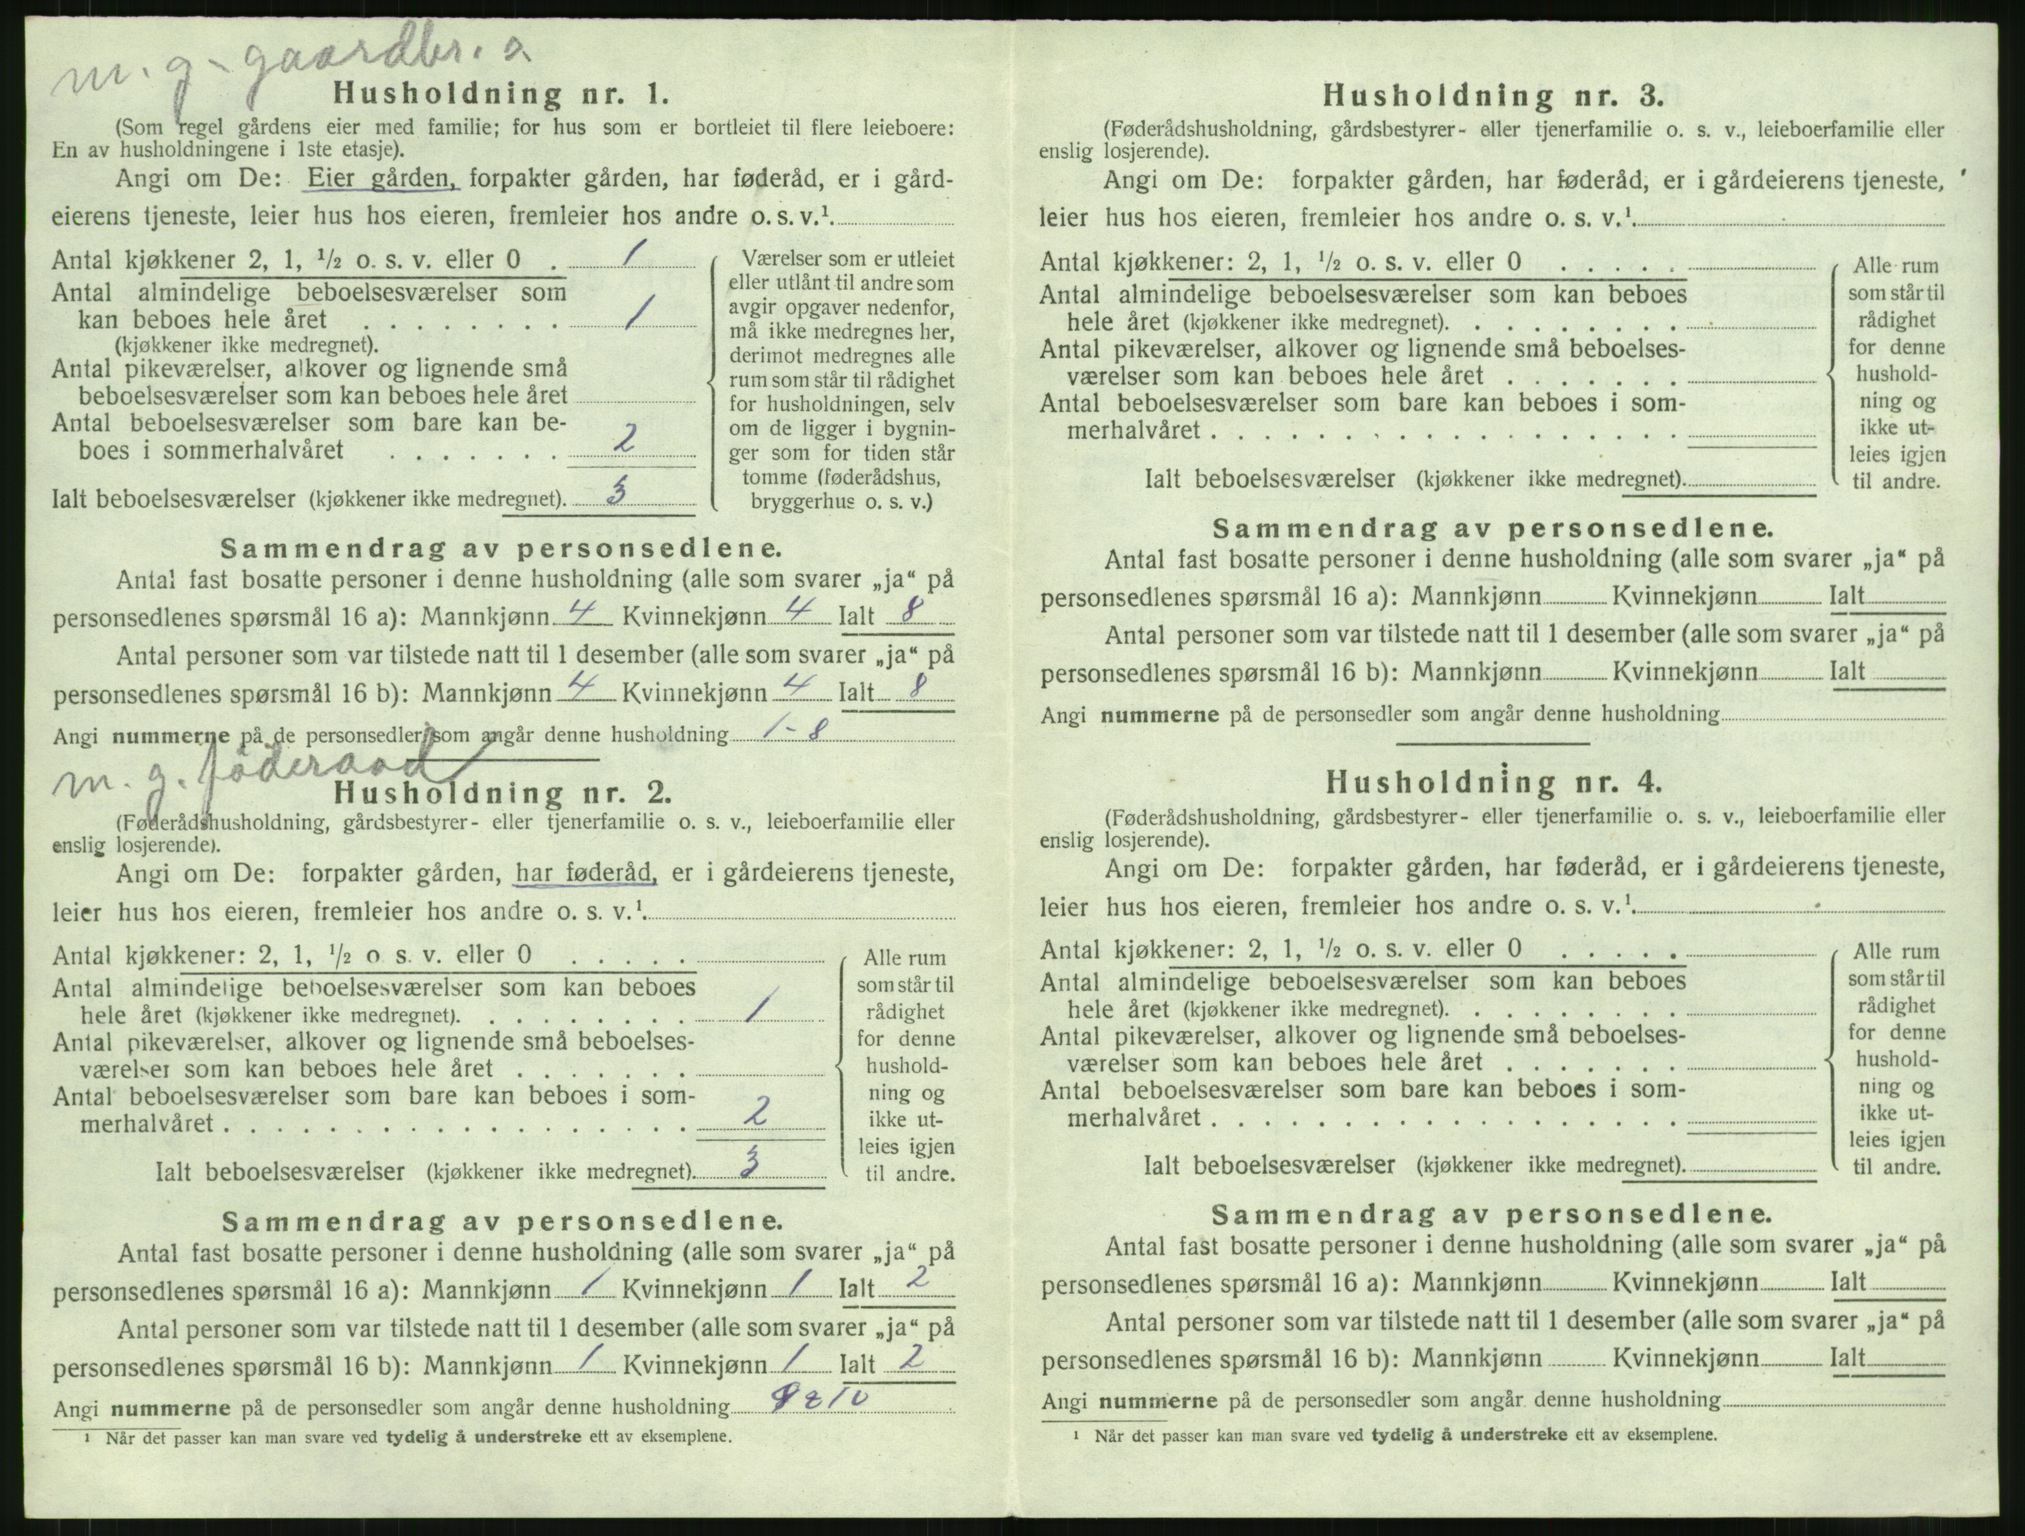 m. g. gaardbr. a
Husholdning nr. 1.
(Som regel gårdens eier med familie; for hus som er bortleiet til flere leieboere:
En av husholdningene i 1ste etasje).
Angi om De: Eier gården, forpakter gården, har føderåd, er i gård-
eierens tjeneste, leier hus hos eieren, fremleier hos andre o. s. v.¹
Antal kjøkkener 2, 1, ½ o. s. v. eller 0 . 1
Antal almindelige beboelsesværelser som
kan beboes hele året . . . . . . . . 1
(kjøkkener ikke medregnet).
Antal pikeværelser, alkover og lignende små
beboelsesværelser som kan beboes hele året
Antal beboelsesværelser som bare kan be-
boes i sommerhalvåret . . . . . . . 2
Ialt beboelsesværelser (kjøkkener ikke medregnet). 3
Værelser som er utleiet
eller utlånt til andre som
avgir opgaver nedenfor,
må ikke medregnes her,
derimot medregnes alle
rum som står til rådighet
for husholdningen, selv
om de ligger i bygnin-
ger som for tiden står
tomme (føderådshus,
bryggerhus o. s. v.)
Sammendrag av personsedlene.
Antal fast bosatte personer i denne husholdning (alle som svarer „ja“ på
personsedlenes spørsmål 16 a): Mannkjønn 4 Kvinnekjønn 4 Ialt 8
Antal personer som var tilstede natt til 1 desember (alle som svarer „ja“ på
personsedlenes spørsmål 16 b): Mannkjønn 4 Kvinnekjønn 4 Ialt 8
Angi nummerne på de personsedler som angår denne husholdning 1-8
m. g. föderaad
Husholdning nr. 2.
(Føderådshusholdning, gårdsbestyrer- eller tjenerfamilie o. s. v., leieboerfamilie eller
enslig losjerende).
Angi om De: forpakter gården, har føderåd, er i gårdeierens tjeneste,
leier hus hos eieren, fremleier hos andre o. s. v.¹
Antal kjøkkener: 2, 1, ½ o. s. v. eller 0 . . . . .
Antal almindelige beboelsesværelser som kan beboes
hele året (kjøkkener ikke medregnet). . . . . . . . . 1
Antal pikeværelser, alkover og lignende små beboelses-
værelser som kan beboes hele året . . . . . . .
Antal beboelsesværelser som bare kan beboes i som-
merhalvåret . . . . . . . . . . . . . . . . . . 2
Ialt beboelsesværelser (kjøkkener ikke medregnet). 3
Alle rum
som står til
rådighet
for denne
hushold-
ning og
ikke ut-
leies igjen
til andre.
Sammendrag av personsedlene.
Antal fast bosatte personer i denne husholdning (alle som svarer „ja“ på
personsedlenes spørsmål 16 a): Mannkjønn 1 Kvinnekjønn 1 Ialt 2
Antal personer som var tilstede natt til 1 desember (alle som svarer „ja“ på
personsedlenes spørsmål 16 b): Mannkjønn 1 Kvinnekjønn 1 Ialt 2
Angi nummerne på de personsedler som angår denne husholdning 10
¹ Når det passer kan man svare ved tydelig å understreke ett av eksemplene.
Husholdning nr. 3.
(Føderådshusholdning, gårdsbestyrer- eller tjenerfamilie o. s. v., leieboerfamilie eller
enslig losjerende).
Angi om De: forpakter gården, har føderåd, er i gårdeierens tjeneste,
leier hus hos eieren, fremleier hos andre o. s. v.¹
Antal kjøkkener: 2, 1, ½ o. s. v. eller 0 . . . . .
Antal almindelige beboelsesværelser som kan beboes
hele året (kjøkkener ikke medregnet). . . . . . . . .
Antal pikeværelser, alkover og lignende små beboelses-
værelser som kan beboes hele året . . . . . . .
Antal beboelsesværelser som bare kan beboes i som-
merhalvåret . . . . . . . . . . . . . . . . . .
Ialt beboelsesværelser (kjøkkener ikke medregnet).
Alle rum
som står til
rådighet
for denne
hushold-
ning og
ikke ut-
leies igjen
til andre.
Sammendrag av personsedlene.
Antal fast bosatte personer i denne husholdning (alle som svarer „ja“ på
personsedlenes spørsmål 16 a): Mannkjønn Kvinnekjønn Ialt
Antal personer som var tilstede natt til 1 desember (alle som svarer „ja“ på
personsedlenes spørsmål 16 b): Mannkjønn Kvinnekjønn Ialt
Angi nummerne på de personsedler som angår denne husholdning
Husholdning nr. 4.
(Føderådshusholdning, gårdsbestyrer- eller tjenerfamilie o. s. v., leieboerfamilie eller
enslig losjerende).
Angi om De: forpakter gården, har føderåd, er i gårdeierens tjeneste,
leier hus hos eieren, fremleier hos andre o. s. v.¹
Antal kjøkkener: 2, 1, ½ o. s. v. eller 0 . . . . .
Antal almindelige beboelsesværelser som kan beboes
hele året (kjøkkener ikke medregnet). . . . . . . . .
Antal pikeværelser, alkover og lignende små beboelses-
værelser som kan beboes hele året . . . . . . .
Antal beboelsesværelser som bare kan beboes i som-
merhalvåret . . . . . . . . . . . . . . . . . .
Ialt beboelsesværelser (kjøkkener ikke medregnet).
Alle rum
som står til
rådighet
for denne
hushold-
ning og
ikke ut-
leies igjen
til andre.
Sammendrag av personsedlene.
Antal fast bosatte personer i denne husholdning (alle som svarer „ja“ på
personsedlenes spørsmål 16 a): Mannkjønn Kvinnekjønn Ialt
Antal personer som var tilstede natt til 1 desember (alle som svarer „ja“ på
personsedlenes spørsmål 16 b): Mannkjønn Kvinnekjønn Ialt
Angi nummerne på de personsedler som angår denne husholdning
¹ Når det passer kan man svare ved tydelig å understreke ett av eksemplene.